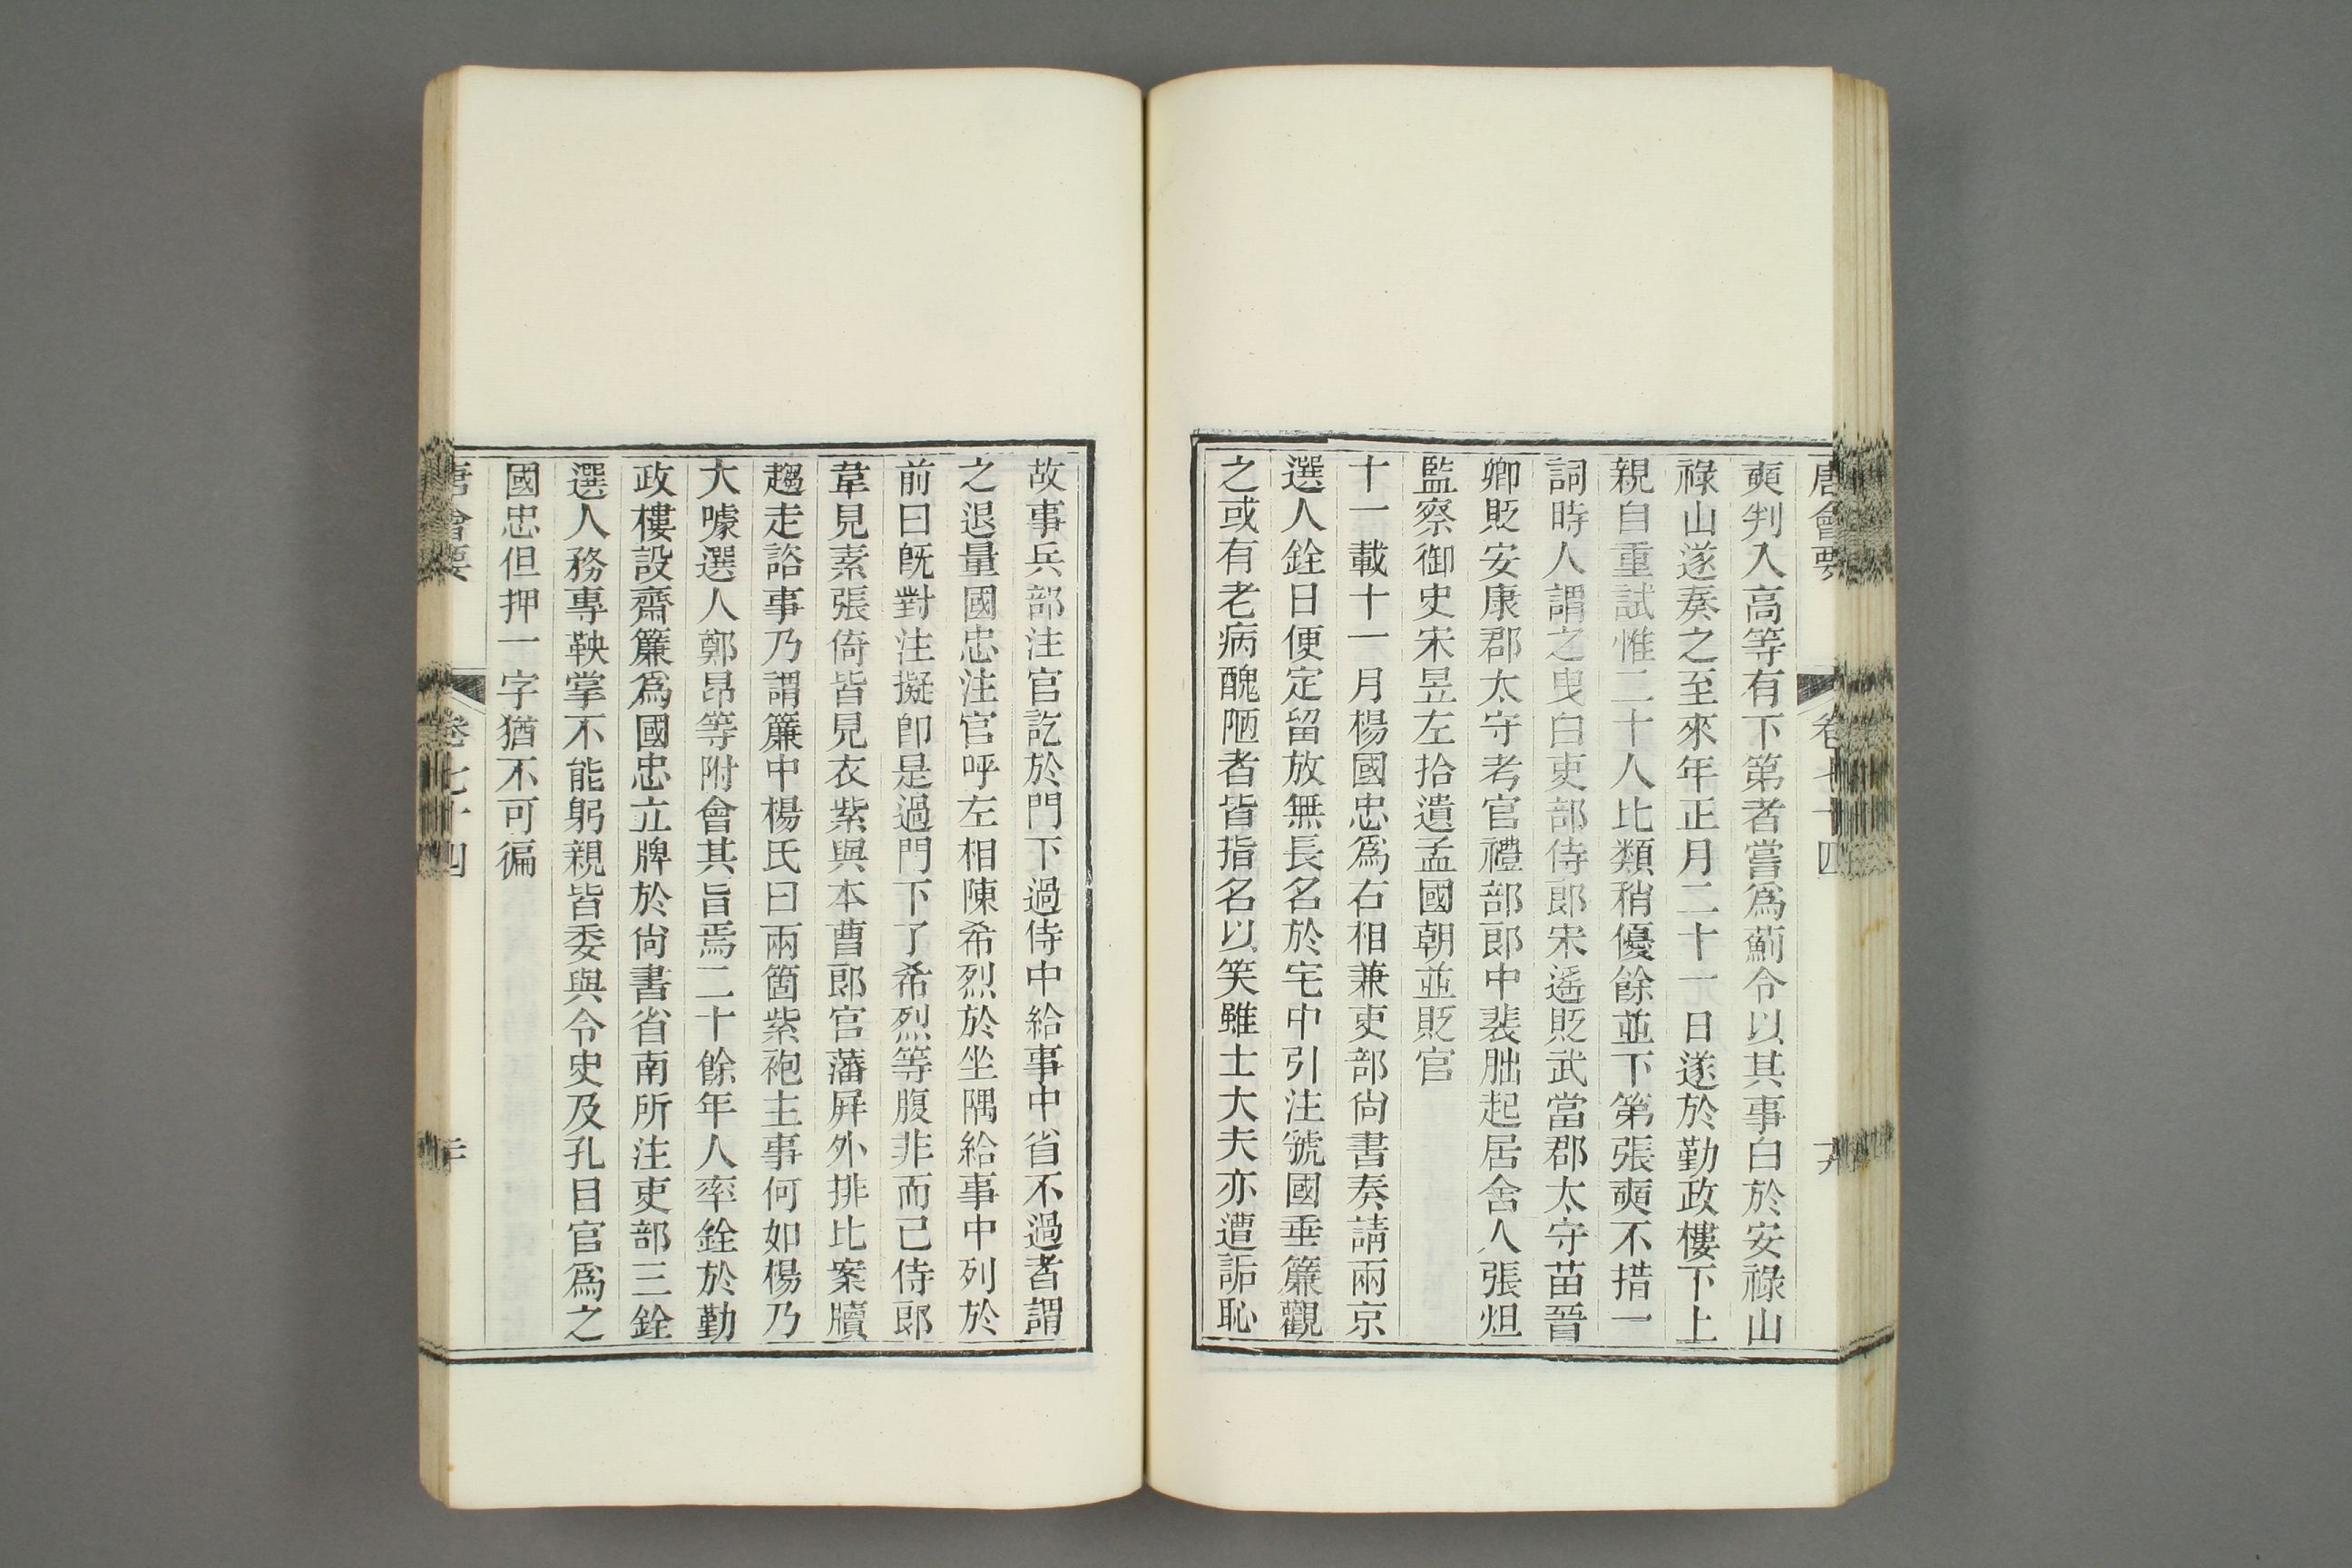 唐會要 卷七十四 十九
奭判入高等有下第者嘗爲薊令以其事白於安祿山
祿山遂奏之至來年正月二十一日遂於勤政樓下上
親自重試惟二十人比類稍優餘並下第張奭不措一
詞時人謂之曳白吏部侍郎宋遙貶武當郡太守苗晉
卿貶安康郡太守考官禮部郎中裴朏起居舍人張烜
監察御史宋昱左拾遺孟國朝並貶官
十一載十一月楊國忠爲右相兼吏部尙書奏請兩京
選人銓日便定留放無長名於宅中引注虢國垂簾觀
之或有老病醜陋者皆指名以笑雖士大夫亦遭詬恥
故事兵部注官訖於門下過侍中給事中省不過者謂
之退量國忠注官呼左相陳希烈於坐隅給事中列於
前曰旣對注擬卽是過門下了希烈等腹非而已侍郎
韋見素張倚皆見衣紫與本曹郎官藩屛外排比案牘
趨走諮事乃謂簾中楊氏曰兩箇紫袍主事何如楊乃
大噱選人鄭昂等附會其旨焉二十餘年人率銓於勤
政樓設齋簾爲國忠立牌於尙書省南所注吏部三銓
選人務專鞅掌不能躬親皆委與令史及孔目官爲之
國忠但押一字猶不可徧
唐會要 卷七十四